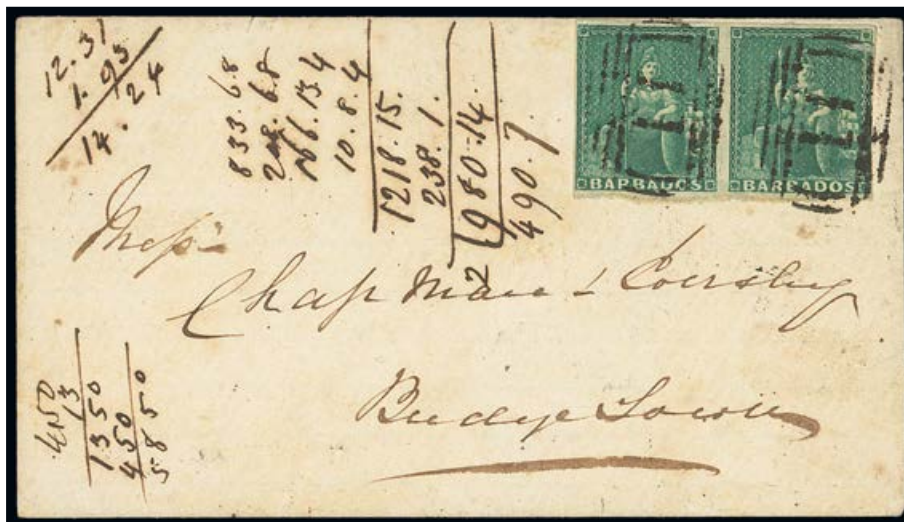 12.31
1.93
14.24
833.6.8
208.6.8
166.13.4
10.8.4
1218.15.
238.1.
2)980.14
490.7
BARBADOS
BARBADOS
11
11
Mess
Chapman &
Bridge Town
450
13
1350
450
5850